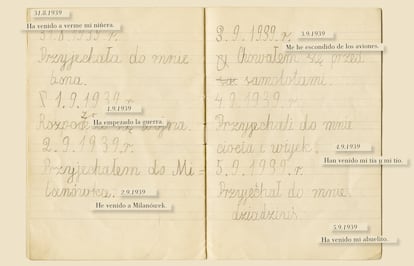 31.8.1939
Ha venido a verme mi niñera.
31.8.1939 r.
Przyjechała do mnie
bona.
1.9.1939
1.9.1939.r.
Ha empezado la guerra.
wojna.
2.9.1939.r.
Przyjechałem do Mi=
lanówka.
2.9.1939
He venido a Milanówek.
3.9.1939
3.9.1939.r.
Me he escondido de los aviones.
Chowałem się przed
samolotami.
4.9.1939.r.
Przyjechali do mnie
4.9.1939
ciocia i wujek.
Han venido mi tía y mi tío.
5.9.1939.r.
Przyjechał do mnie
dziadziuś
5.9.1939
Ha venido mi abuelito.